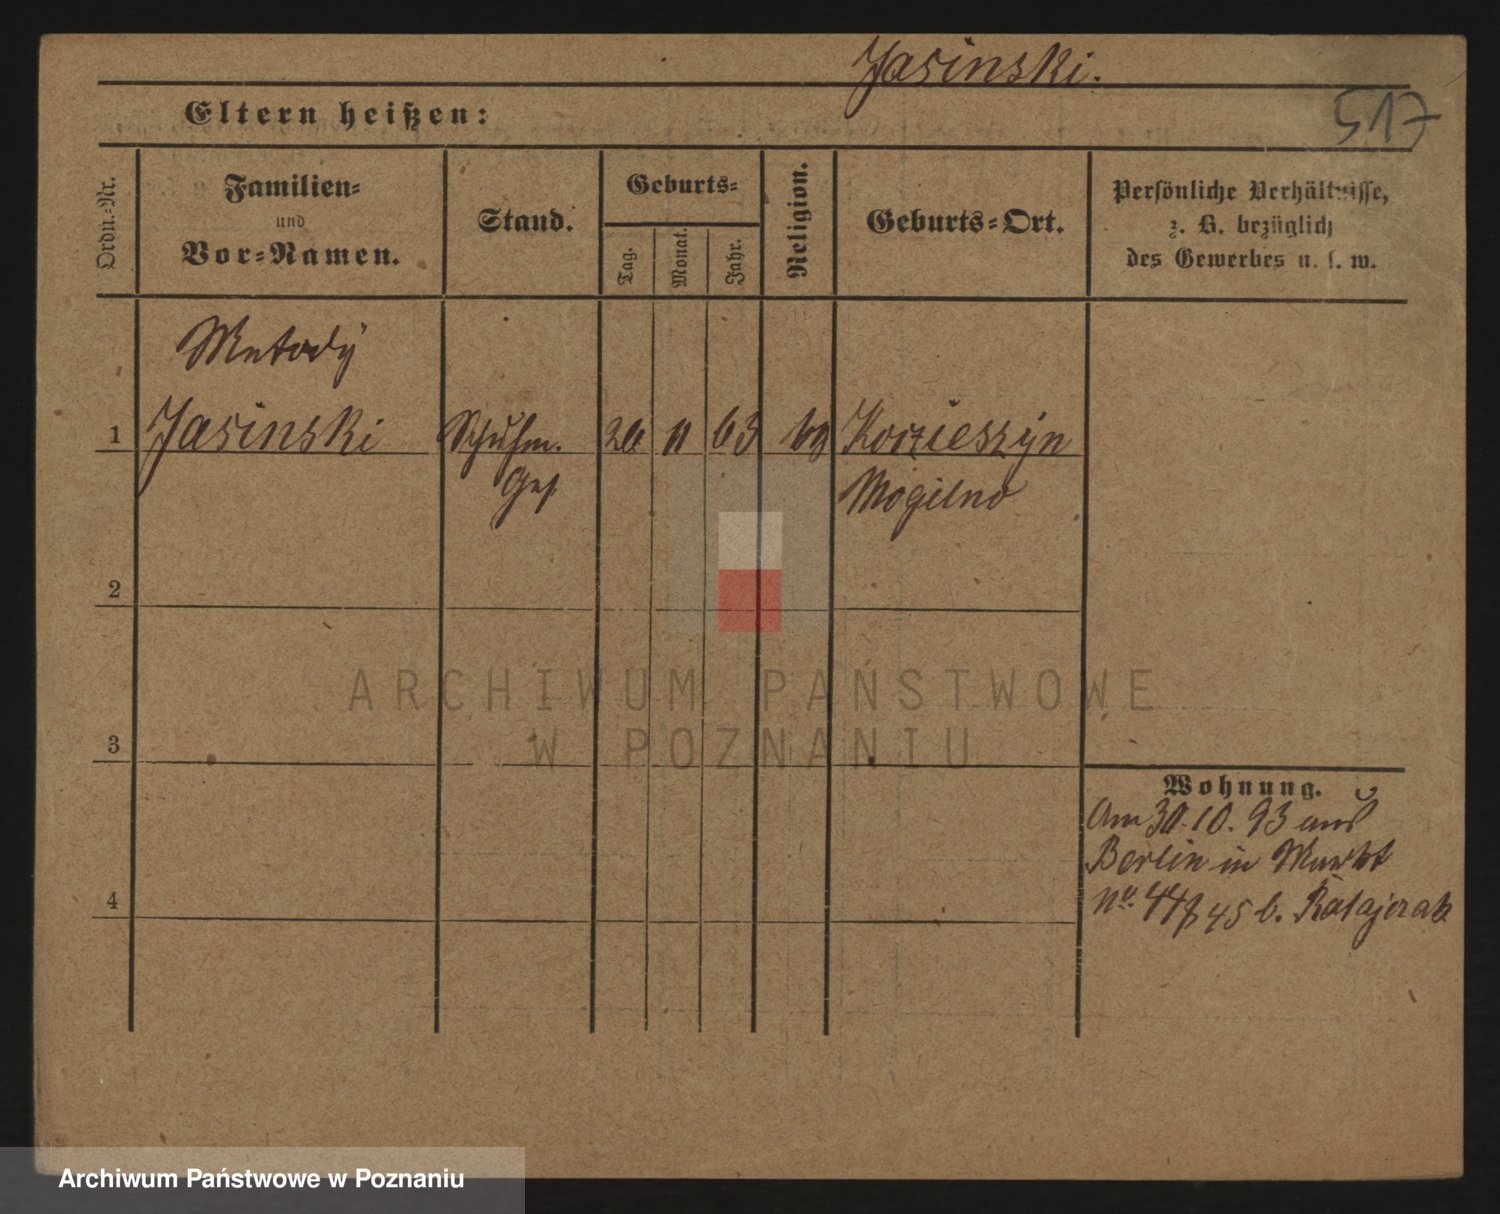 Jasinski.
517
Eltern heißen:
Ordn.-Nr.
Familien-
und
Vor-Namen.
Stand.
Geburts-
Tag.
Monat.
Jahr.
Religion.
Geburts-Ort.
Persönliche Verhältnisse,
z. B. bezüglich
des Gewerbes u. s. w.
Metody
1 Jasinski Schuhm. 26 11 63
Ges
Mogilno
2
3
4
Wohnung.
Am 30.10.93 aus
Berlin in Markt
No. 44/45 b. Ratajczak
ARCHIWUM PAŃSTWOWE
W POZNANIU
Archiwum Państwowe w Poznaniu